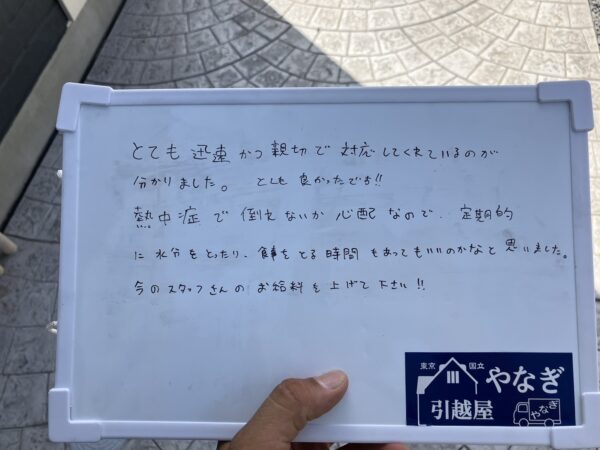 とても 迅速 かつ 親切で 対応 してくれているのが
分かりました。 とても 良かったです!!
熱中症で 倒れないか 心配 なので、 定期的
に 水分をとったり、食事をとる時間 もあってもいいのかなと 思いました。
今のスタッフさんの お給料を上げて 下さい!!
東京 国立 やなぎ
引越屋 やなぎ